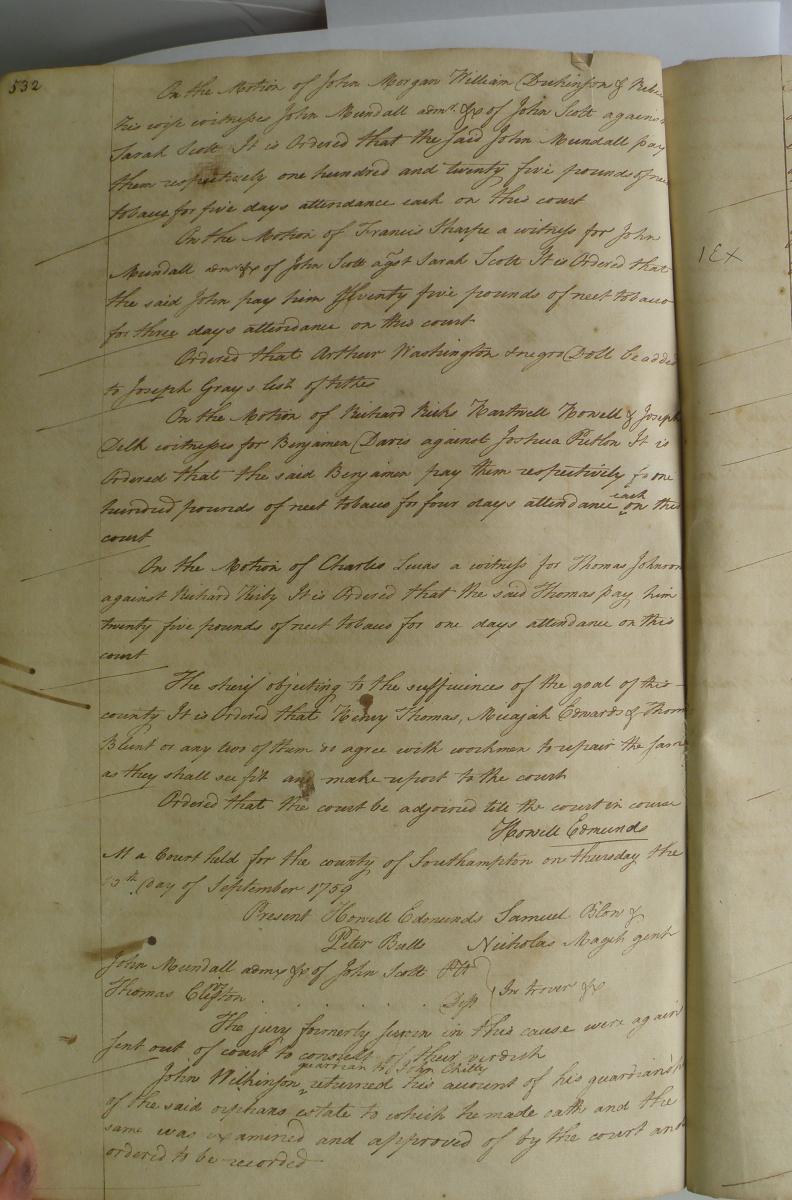 532
On the Motion of John Morgan William Dickinson &
his wife witnesses John Mundall admr. &c of John Scott against
Sarah Scott It is Ordered that the said John Mundall pay
them respectively one hundred and twenty five pounds of
tobacco for five days attendance each on this court
On the Motion of Francis Sharpe a witness for John
Mundall admr &c of John Scott agst Sarah Scott It is Ordered that
the said John pay him Seventy five pounds of neet tobacco
for three days attendance on this court
Ordered that Arthur Washington & negro Doll be added
to Joseph Grays list of tithes
On the Motion of Richard Ricks Hartwell Howell & Joseph
Delk witnesses for Benjamen Davis against Joshua It is
Ordered that the said Benjamen pay them respectively one
hundred pounds of neet tobacco for four days attendance each on this
court
On the Motion of Charles Lucas a witness for Thomas Johnson
against Richard Kirby It is Ordered that the said Thomas pay him
twenty five pounds of neet tobacco for one days attendance on this
court
The sherif objecting to the sufficiences of the goal of this
county It is Ordered that Henry Thomas, Micajah Edwards &
Blunt or any two of them do agree with workmen to repair the same
as they shall see fit and make report to the court
Ordered that the court be adjoined till the court in course
Howell Edmunds
At a Court held for the county of Southampton on thursday the
day of September 1759
Present Howell Edmunds Samuel Blow &
Peter Butts Nicholas Maget gent
John Mundall admr &c of John Scott Pltf
Thomas Clifton Deft In trover &c
The jury formerly sworn in this cause were again
sent out of court to consult of their verdict
John Wilkinson guardian to John Chitty returned his account of his guardianship
of the said orphans estate to which he made oath and the
same was examined and approved of by the court and
ordered to be recorded
1 EX